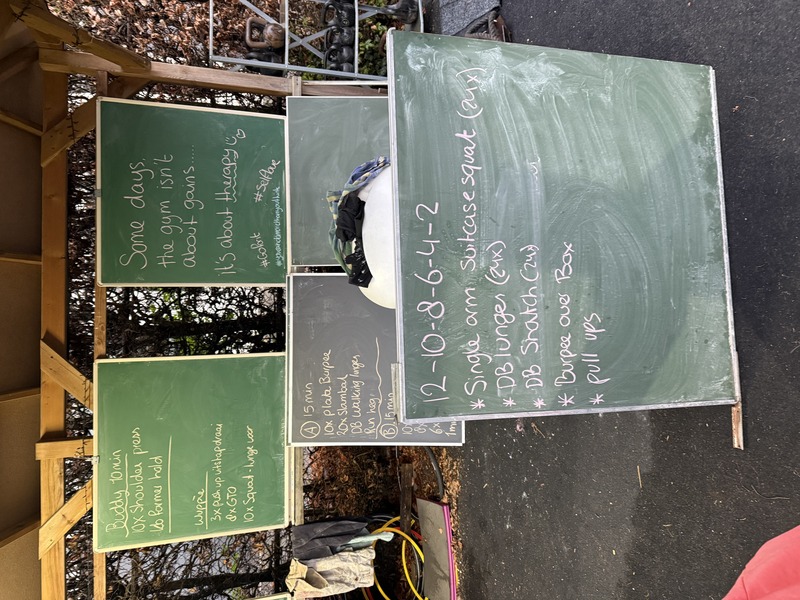 Some days,
the gym isn't
about gains.....
It's about therapy
#GoPark #SelfMade
Buddy 10 min
10x Shoulder press
DB Farmer hold
Wippie
3x push up
8x GTO
10x Squat - lunge
Ⓐ 15 min
10x plate Burpee
20x Slamball
DB walking lunges
Run heg
Ⓑ 15 min
12-10-8-6-4-2
* Single arm suitcase squat (24x)
* DB lunges (24x)
* DB Snatch (24x)
* Burpee over Box
* pull ups